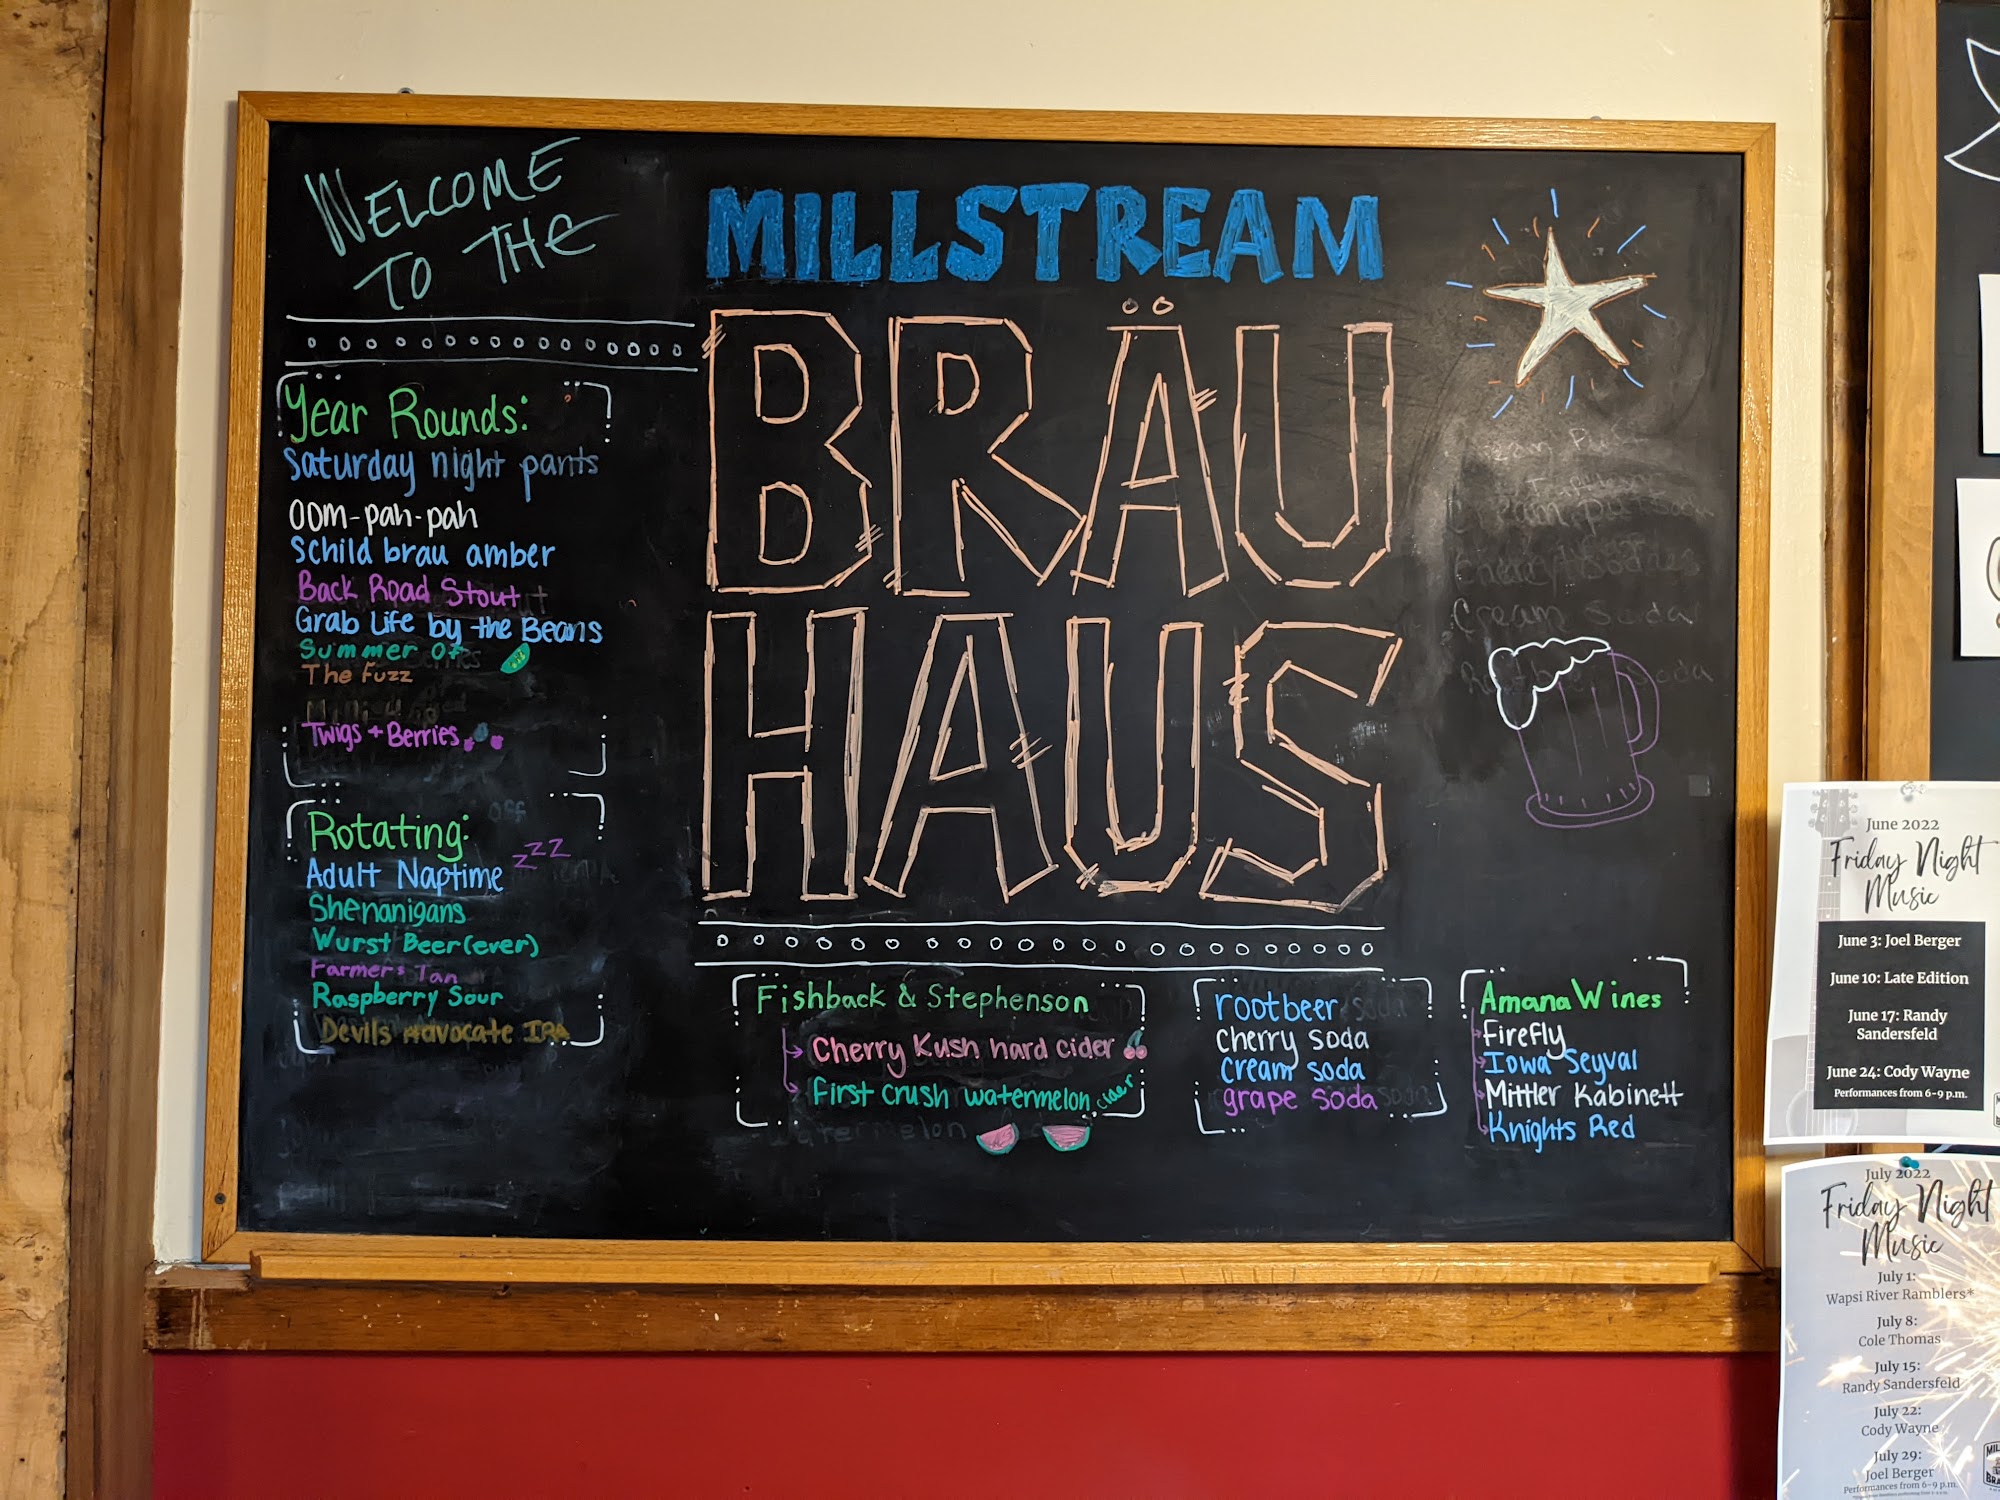 WELCOME
TO THE
MILLSTREAM
BRÄU
HAUS
Year Rounds:
Saturday night pants
OOM-pah-pah
Schild brau amber
Back Road Stout
Grab Life by the Beans
Summer Of
The Fuzz
Twigs + Berries
Rotating:
Adult Naptime
zzz
Shenanigans
Wurst Beer (ever)
Farmer's Tan
Raspberry Sour
Devils Advocate IPA
Fishback & Stephenson
Cherry Kush hard cider
First crush watermelon cider
rootbeer
cherry soda
cream soda
grape soda
Amana Wines
Firefly
Iowa Seyval
Mittler Kabinett
Knights Red
June 2022
Friday Night
Music
June 3: Joel Berger
June 10: Late Edition
June 17: Randy
Sandersfeld
June 24: Cody Wayne
Performances from 6-9 p.m.
July 2022
Friday Night
Music
July 1:
Wapsi River Ramblers*
July 8:
Cole Thomas
July 15:
Randy Sandersfeld
July 22:
Cody Wayne
July 29:
Joel Berger
Performances from 6-9 p.m.